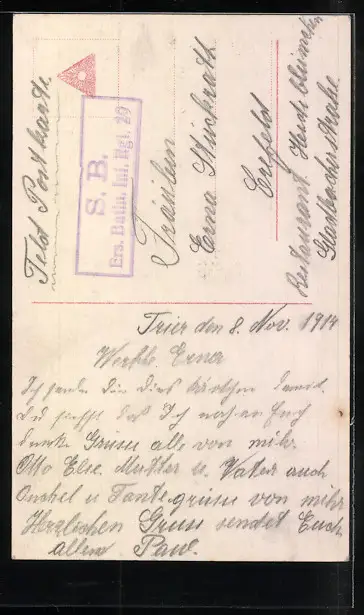 Feld Postkarte
S. B.
Ers. Batln. Inf. Rgt. 29
Fräulein
Erna Stuckrath
Crefeld
Restaurant
Gladbacher Straße
Trier den 8. Nov. 1914
Werthe Erna
Ich sende Dir dies Kärtchen damit
Du siehst das Ich noch an Euch
denke Grüse alle von mihr.
Otto Else Mutter u. Vater auch
Onckel u Tante grüse von mihr
Herzlichen Gruss sendet Euch
allen Paul.